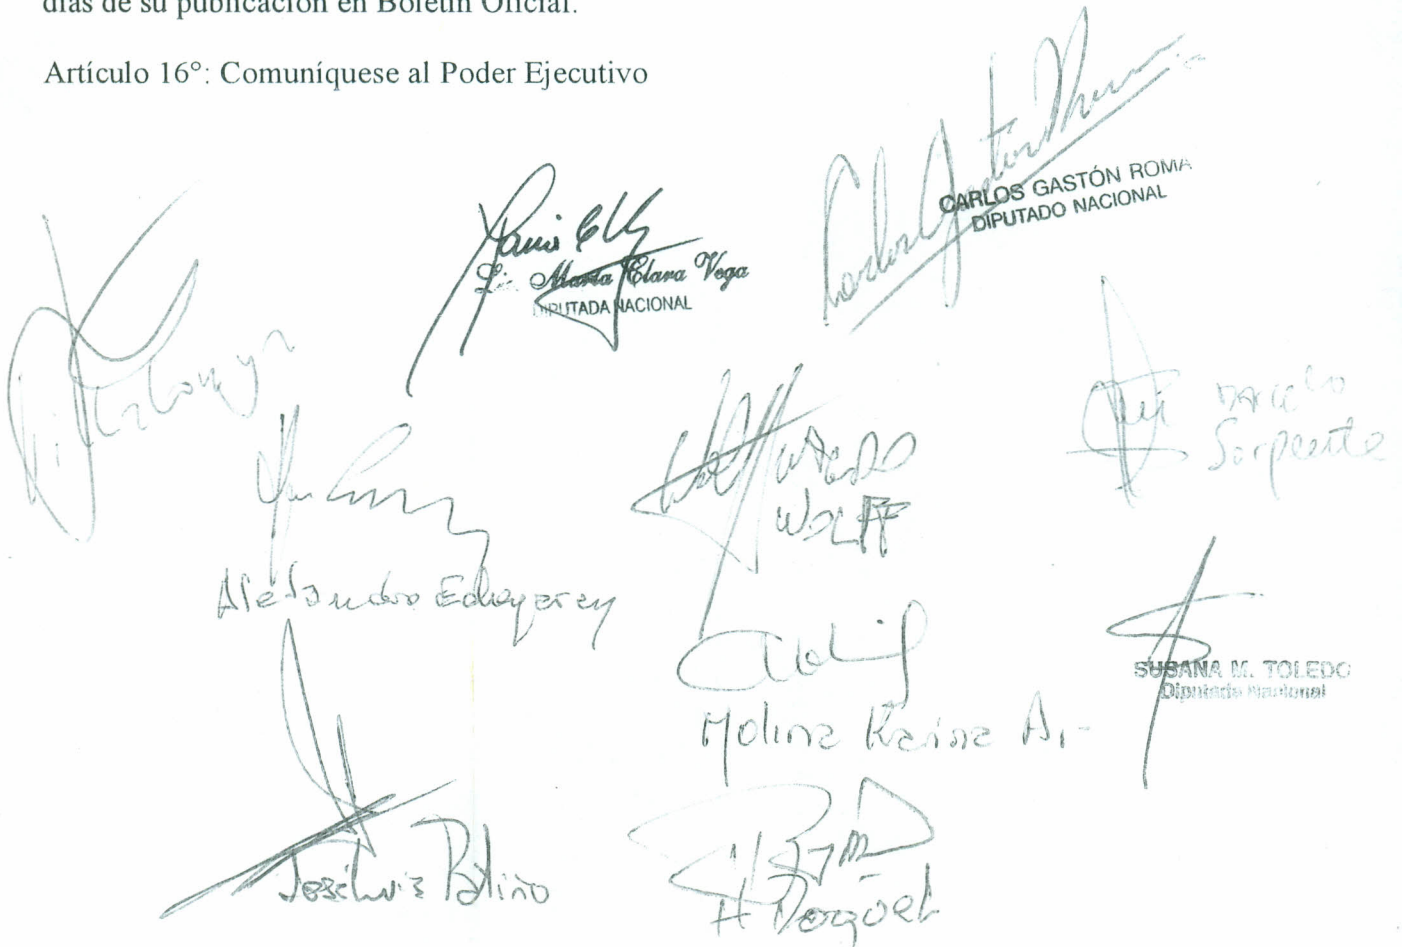 días de su publicación en Boletín Oficial.
Artículo 16°: Comuníquese al Poder Ejecutivo
CARLOS GASTÓN ROMA
DIPUTADO NACIONAL
Lic. María Clara Vega
DIPUTADA NACIONAL
Sorpente
WOLFF
Alejandro Echegaray
SUSANA M. TOLEDO
Diputada Nacional
Molina Karina A.-
José Luis Patiño